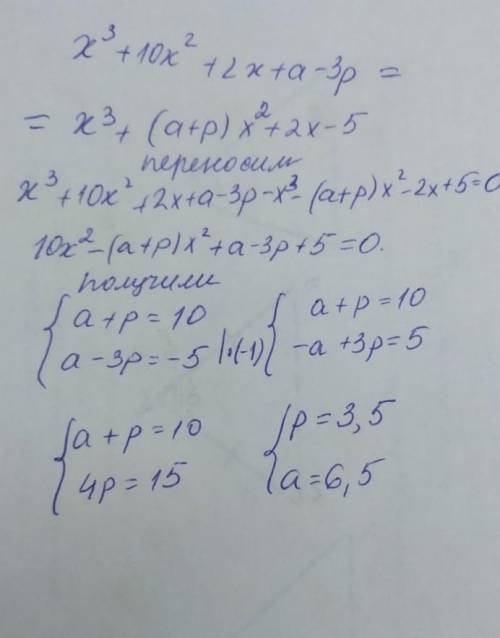 x³ + 10x² + 2x + a - 3p =
= x³ + (a+p) x² + 2x - 5
переносим
x³ + 10x² + 2x + a - 3p - x³ - (a+p) x² - 2x + 5 = 0
10x² - (a+p) x² + a - 3p + 5 = 0.
получили
{ a + p = 10
a - 3p = -5 |·(-1)
{ a + p = 10
-a + 3p = 5
{ a + p = 10
4p = 15
{ p = 3,5
a = 6,5